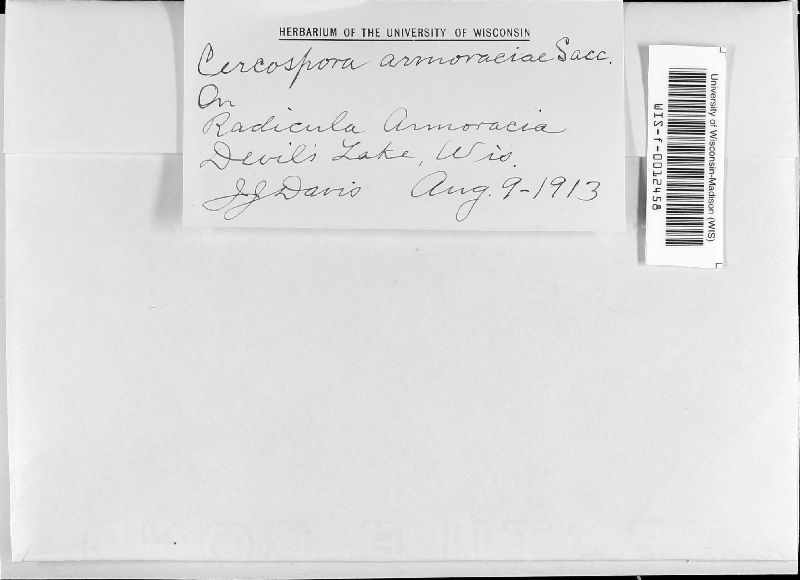 HERBARIUM OF THE UNIVERSITY OF WISCONSIN
Cercospora armoraciae Sacc.
On
Radicula Armoracia
Devil's Lake, Wis.
JJ Davis Aug. 9-1913
University of Wisconsin-Madison (WIS)
WIS-f-0012458